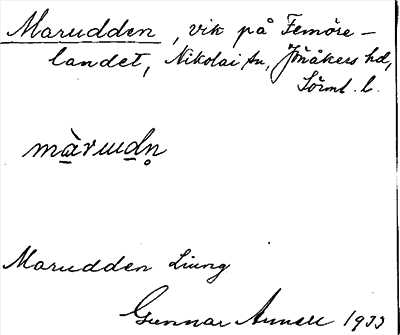 Marudden, vik på Femöre-
landet, Nikolai sn, Jönåkers hd,
Sörml. l.
màruudn̥
Marudden Ljung
Gunnar Annell 1933